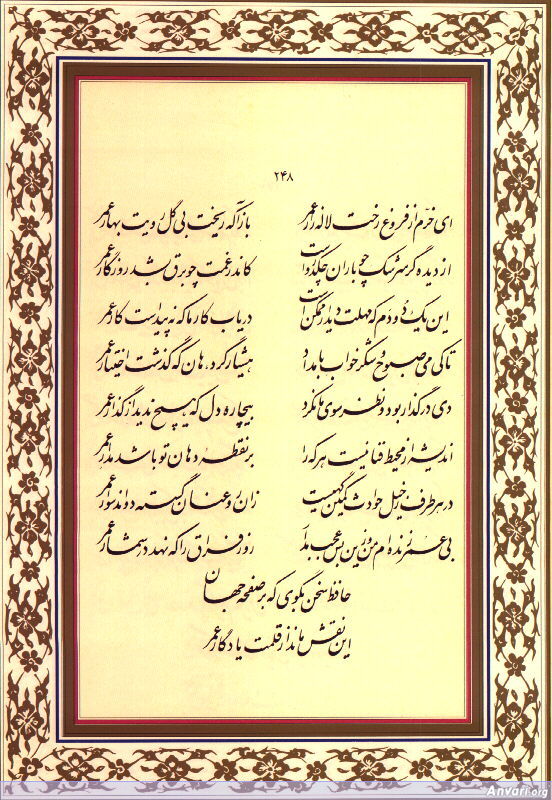 ۲۴۸
ای خرم از فروغ رخت لاله زار عمر بازآ که ریخت بی گل رویت بهار عمر
از دیده گر سرشک چو باران چکد رواست کاندر غمت چو برق بشد روزگار عمر
این یک دو دم که مهلت دیدار ممکن است دریاب کار ما که نه پیداست کار عمر
تا کی می صبوح و شکر خواب بامداد هشیار گرد، هان که گذشت اختیار عمر
دی در گذار بود و نظر سوی ما نکرد بیچاره دل که هیچ ندید از گذار عمر
اندیشه از محیط فنا نیست هر که را بر نقطه دهان تو باشد مدار عمر
در هر طرف ز خیل حوادث کمین گهیست زان رو عنان گسسته دواند سوار عمر
بی عمر زنده ام من و زین بس عجب مدار روز فراق را که نهد در شمار عمر
حافظ سخن بگوی که بر صفحه جهان
این نقش ماند از قلمت یادگار عمر
Anvari.org